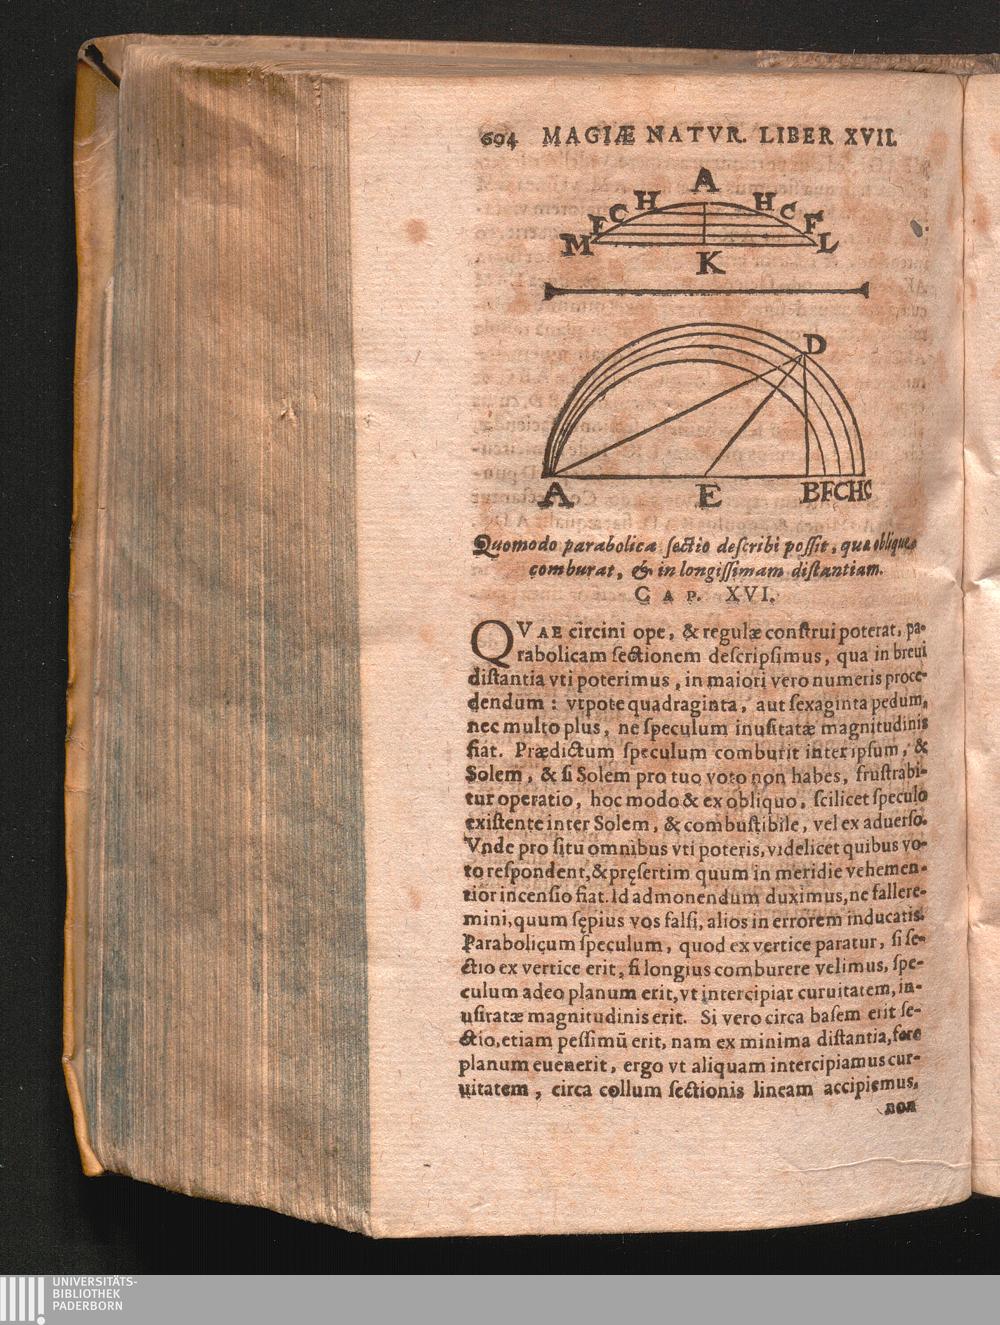 694 MAGIÆ NATVR. LIBER XVII.
A
H H
C C
F F
M L
K
D
A E BFCHC
Quomodo parabolica ſectio deſcribi poſſit, quæ oblique
comburat, & in longiſſimam diſtantiam.
CAP. XVI.
QVAE circini ope, & regulæ conſtrui poterat, pa-
rabolicam ſectionem deſcripſimus, qua in breui
diſtantia vti poterimus, in maiori vero numeris proce-
dendum: vtpote quadraginta, aut ſexaginta pedum,
nec multo plus, ne ſpeculum inuſitatæ magnitudinis
fiat. Prædictum ſpeculum comburit inter ipſum, &
Solem, & ſi Solem pro tuo voto non habes, fruſtrabi-
tur operatio, hoc modo & ex obliquo, ſcilicet ſpeculo
exiſtente inter Solem, & combuſtibile, vel ex aduerſo.
Vnde pro ſitu omnibus vti poteris, videlicet quibus vo-
to reſpondent, & pręſertim quum in meridie vehemen-
tior incenſio fiat. Id admonendum duximus, ne fallere-
mini, quum ſępius vos falſi, alios in errorem inducatis.
Parabolicum ſpeculum, quod ex vertice paratur, ſi ſe-
ctio ex vertice erit, ſi longius comburere velimus, ſpe-
culum adeo planum erit, vt intercipiat curuitatem, in-
uſitatæ magnitudinis erit. Si vero circa baſem erit ſe-
ctio, etiam peſſimū erit, nam ex minima diſtantia, fere
planum euenerit, ergo vt aliquam intercipiamus cur-
uitatem, circa collum ſectionis lineam accipiemus,
non
UNIVERSITÄTS-
BIBLIOTHEK
PADERBORN